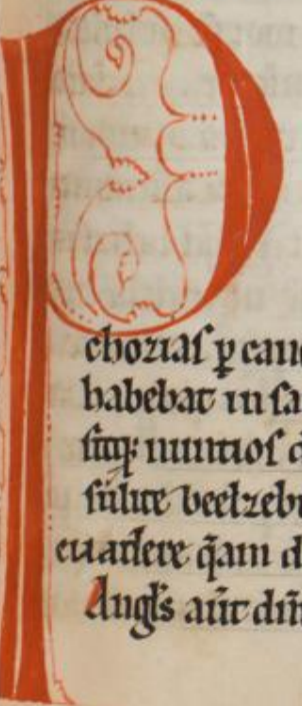 P
choziaſ p̱ cau
habebat in ſa
ſitqꝫ nuntioſ
ſulite beelzebu
euadere q̄am d
Angl̄s aūt dn̄i